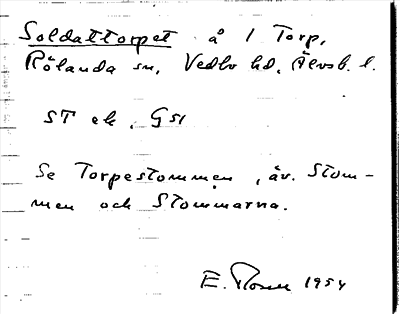 Soldattorpet å 1 Torp,
Rölanda sn, Vedbo hd, Älvsb. l.
ST ek. GSI
Se Torpestommen, äv. Stom-
men och Stommarna.
E. 1954